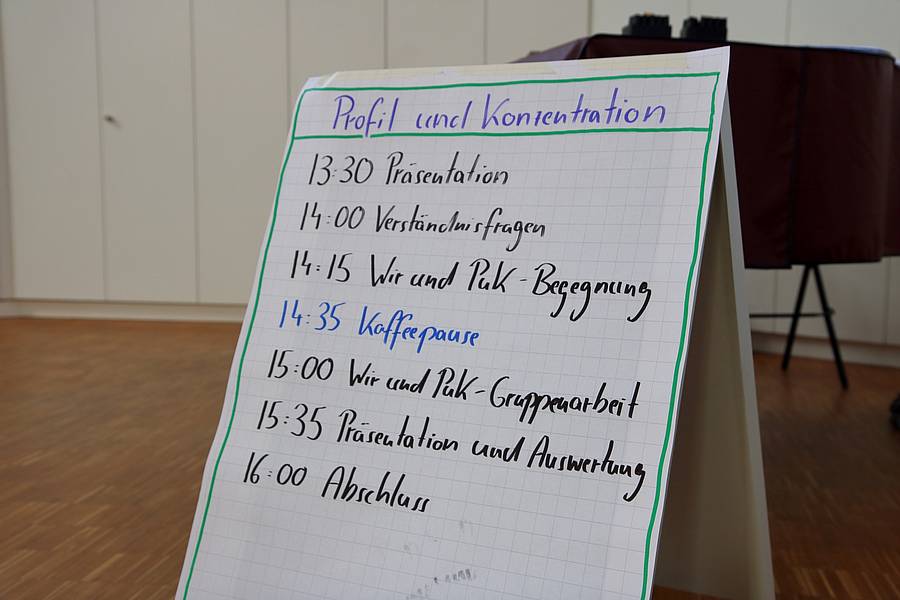 Profil und Konzentration
13:30 Präsentation
14:00 Verständnisfragen
14:15 Wir und PuK-Begegnung
14:35 Kaffeepause
15:00 Wir und PuK-Gruppenarbeit
15:35 Präsentation und Auswertung
16:00 Abschluss